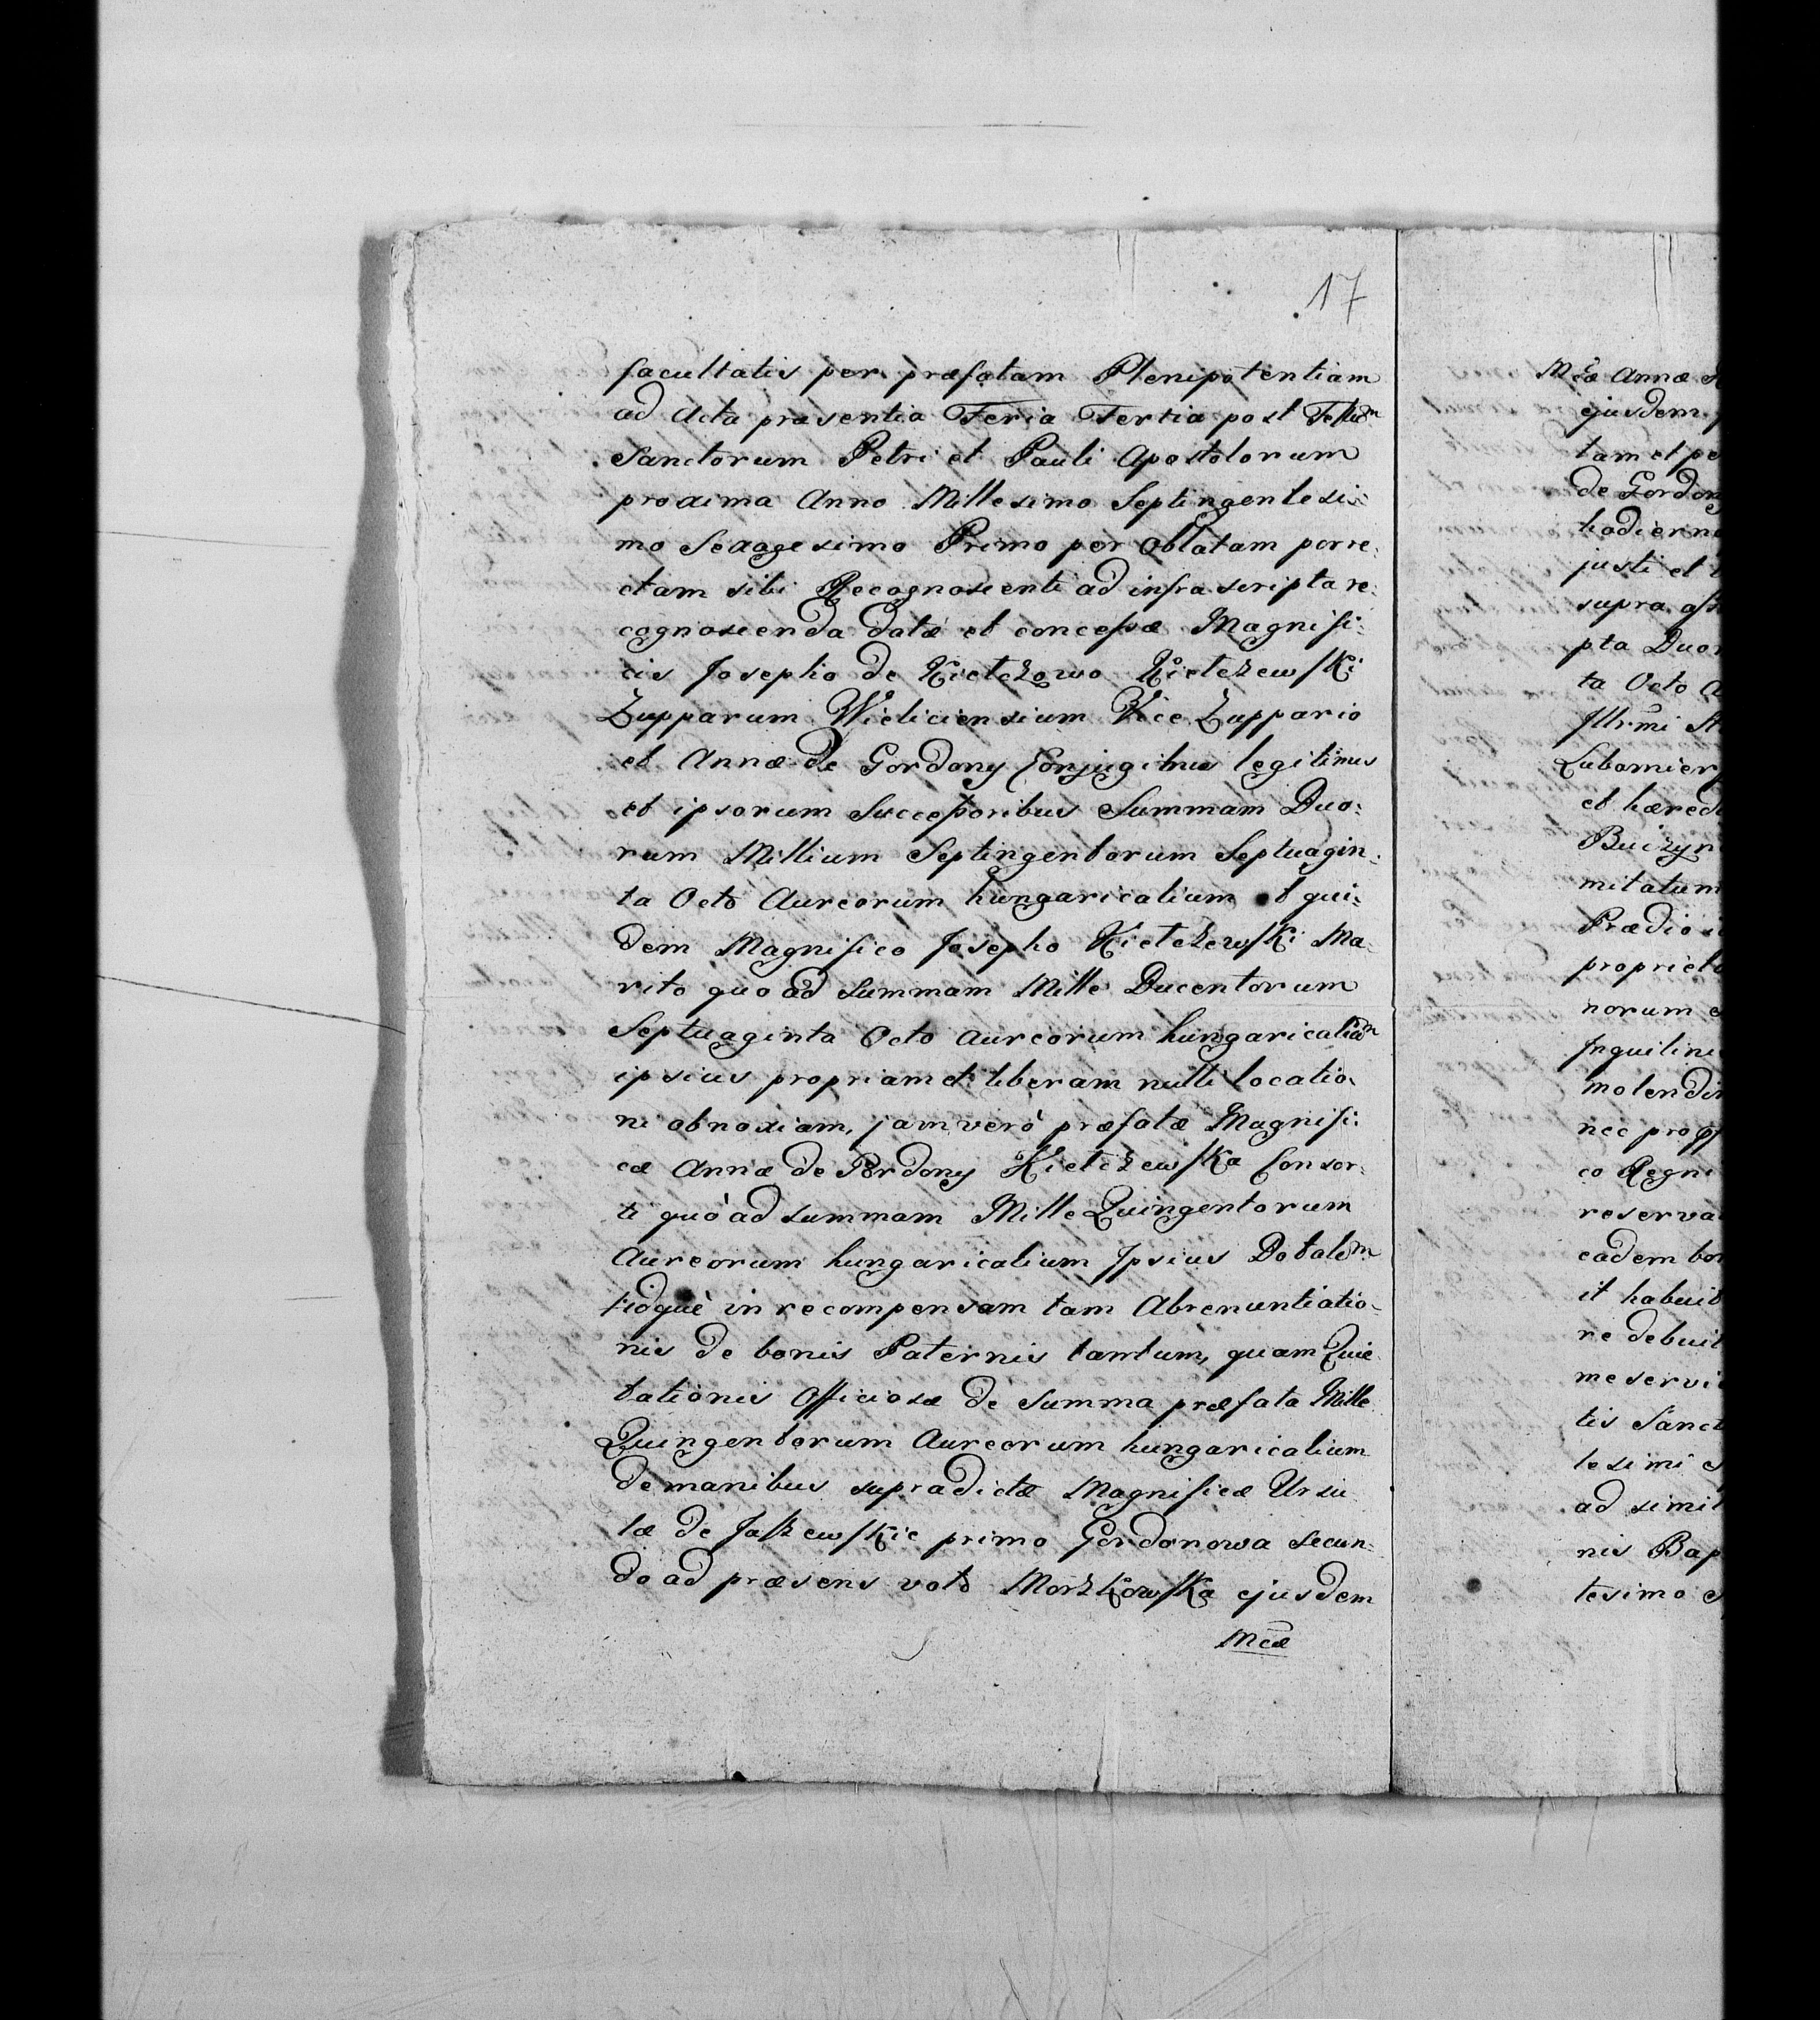 17
facultatis per præfatam Plenipotentiam
ad Acta præsentia Feria Tertia post Festum
Sanctorum Petri et Pauli Apostolorum
proxima Anno Millesimo Septingentesi:
mo Sexagesimo Primo per Oblatam porre:
ctam sibi Recognoscenti ad infra scripta re:
cognoscenda datæ et concessæ Magnifi:
cis Josepho de Kiełczowo Kiełczewski
Zupparum Wieliciensium Vice Zuppario
et Annæ de Gordony Conjugibus legitimis
et ipsorum Successoribus Summam Duo:
rum Millium Septingentorum Septuagin:
ta Octo Aureorum hungaricalium et qui:
dem Magnifico Josepho Kiełczewski Ma:
rito quo ad Summam Mille Ducentorum
Septuaginta Octo aureorum hungaricalium
ipsius propriam et liberam nulli locatio:
ni obnoxiam, jam verò præfatæ Magnifi:
cæ Annæ de Gordony Kiełczewska Consor:
ti quò ad summam Mille Quingentorum
Aureorum hungaricalium Ipsius Dotalem
idquè in recompensam tam Abrenuntiatio:
nis de bonis Paternis tantum, quam Quie:
tationis Officiosæ de Summa præfata Mille
Quingentorum Aureorum hungaricalium
de manibus supradictæ Magnificæ Ursu:
læ de Jaszewskie primo Gordonowa secun:
do ad præsens voto Morzkowska ejusdem
Mcæ
Mcæ Annæ
ejusdem
tam et
de Gordony
hodierna
justi et
supra
pta
ta Octo
Illrmi

et
Buizyn
mitatum
Prædio

norum

nec
co Regni

eadem
it habuit
re debuit

tis

ad
nis
tesimo